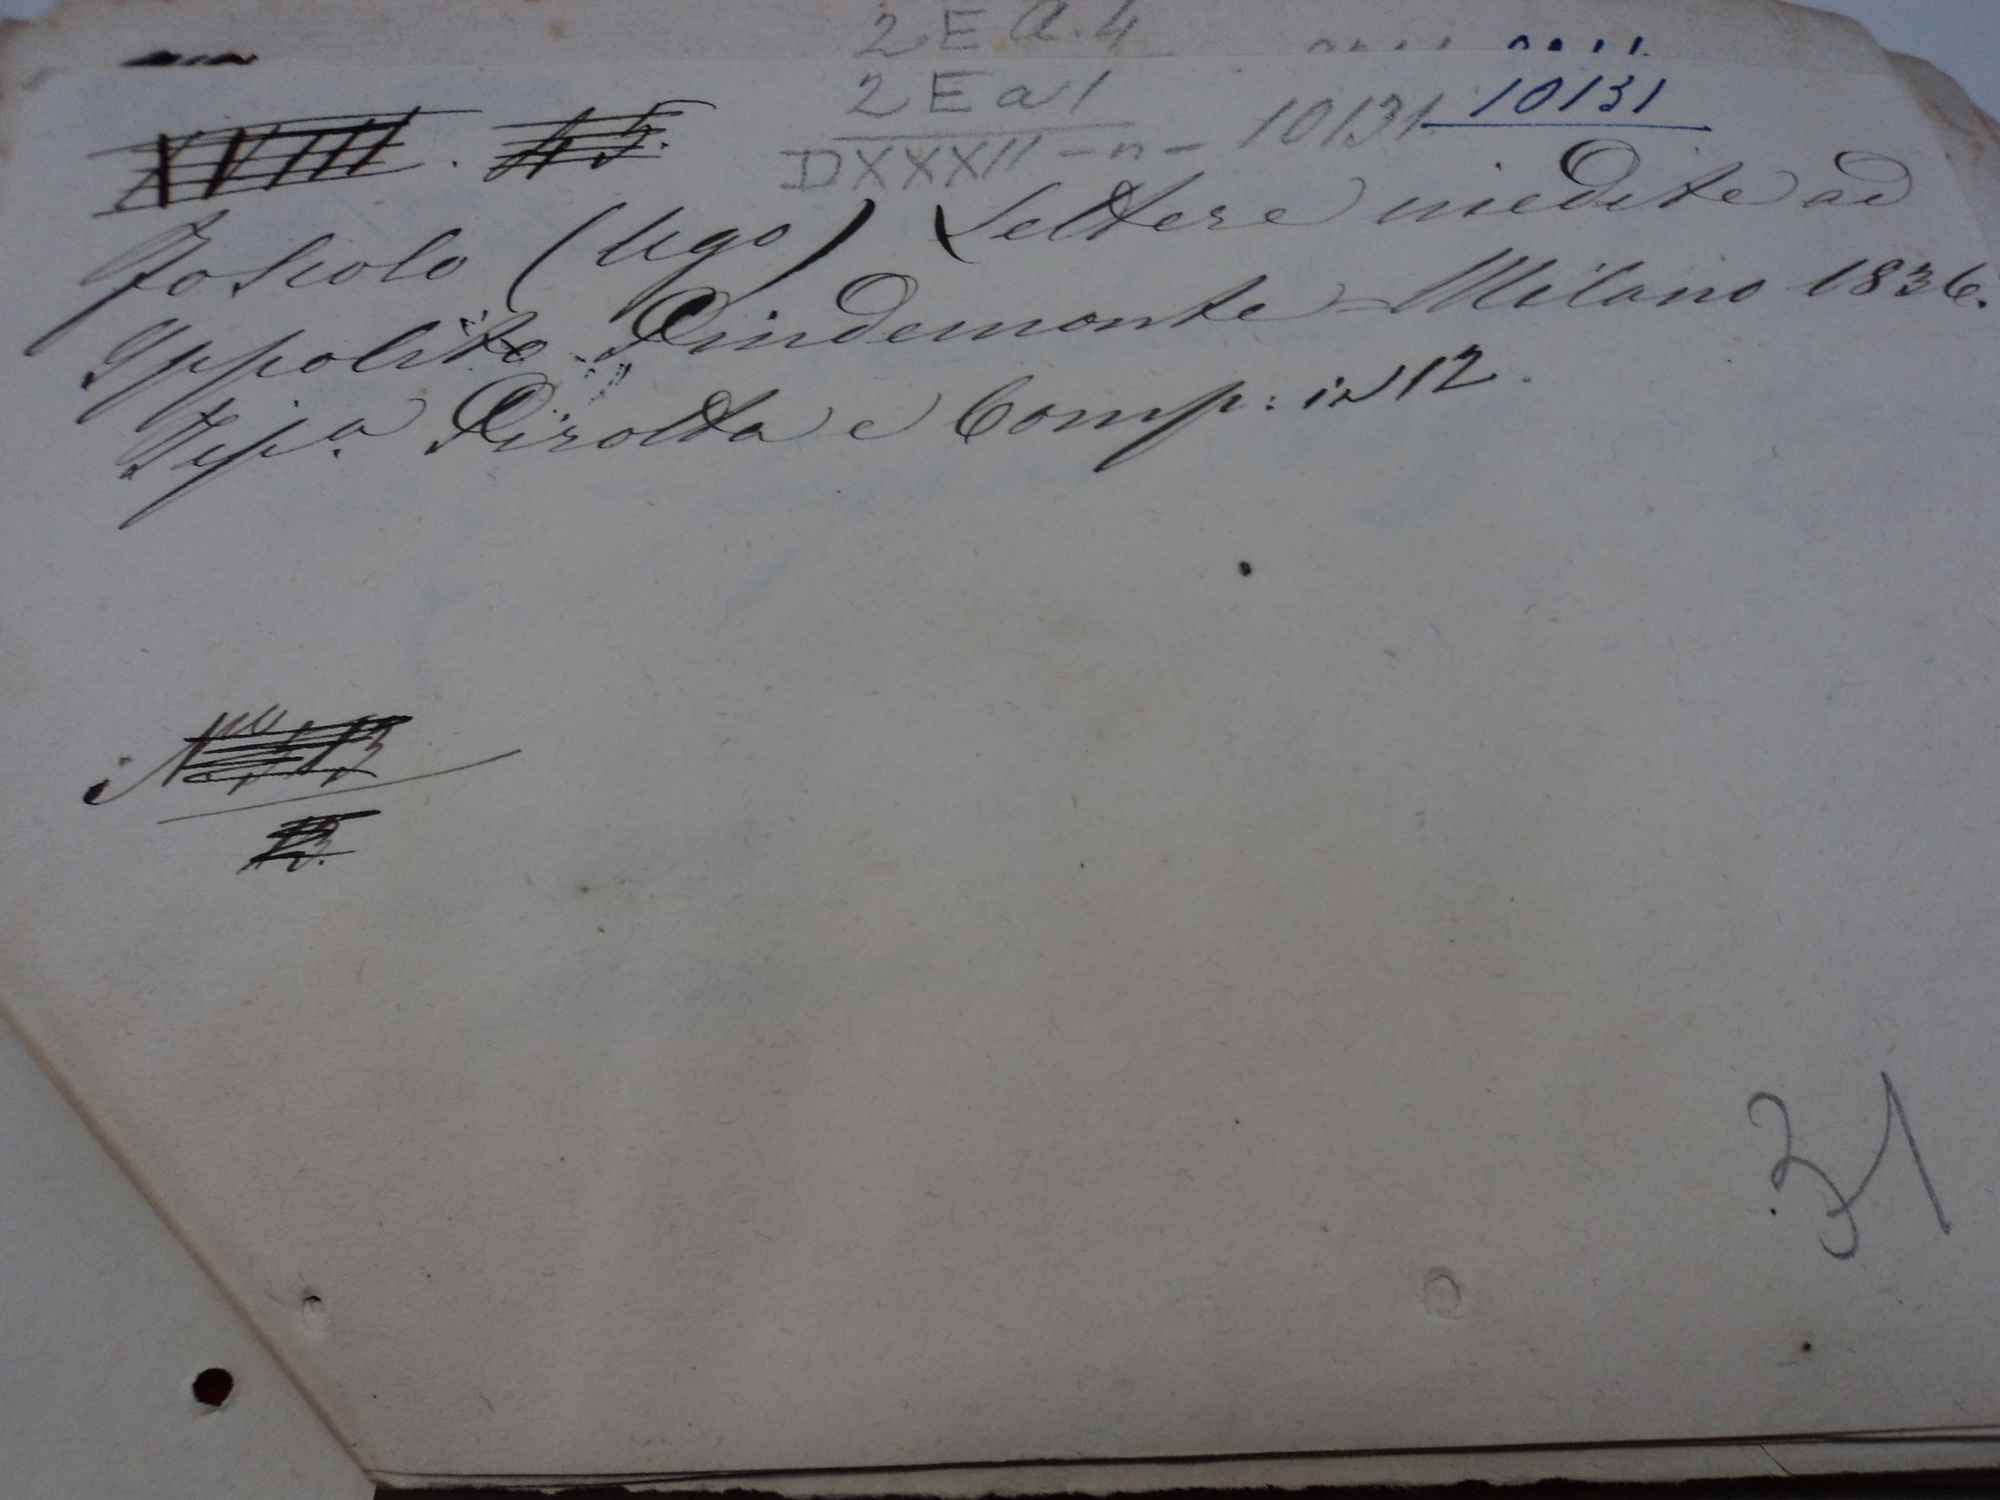 2 E a. 4
2 E a 1
10131
XVIII. 45.
DXXXII - n - 10131
Foscolo (Ugo) Lettere inedite ad
Ippolito Pindemonte - Milano 1836.
Tip.a Pirotta e Comp: in 12.
31